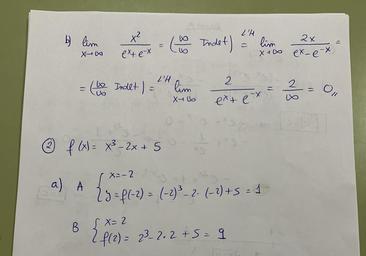 b) lim x→∞ x²/(eˣ+e⁻ˣ) = (∞/∞ Indet) =^{L'H} lim x→∞ 2x/(eˣ-e⁻ˣ) =
= (∞/∞ Indet) =^{L'H} lim x→∞ 2/(eˣ+e⁻ˣ) = 2/∞ = 0,,
② f(x) = x³-2x+5
a) A { x=-2
y=f(-2) = (-2)³-2·(-2)+5 = 1
B { x=2
f(2) = 2³-2·2+5 = 9